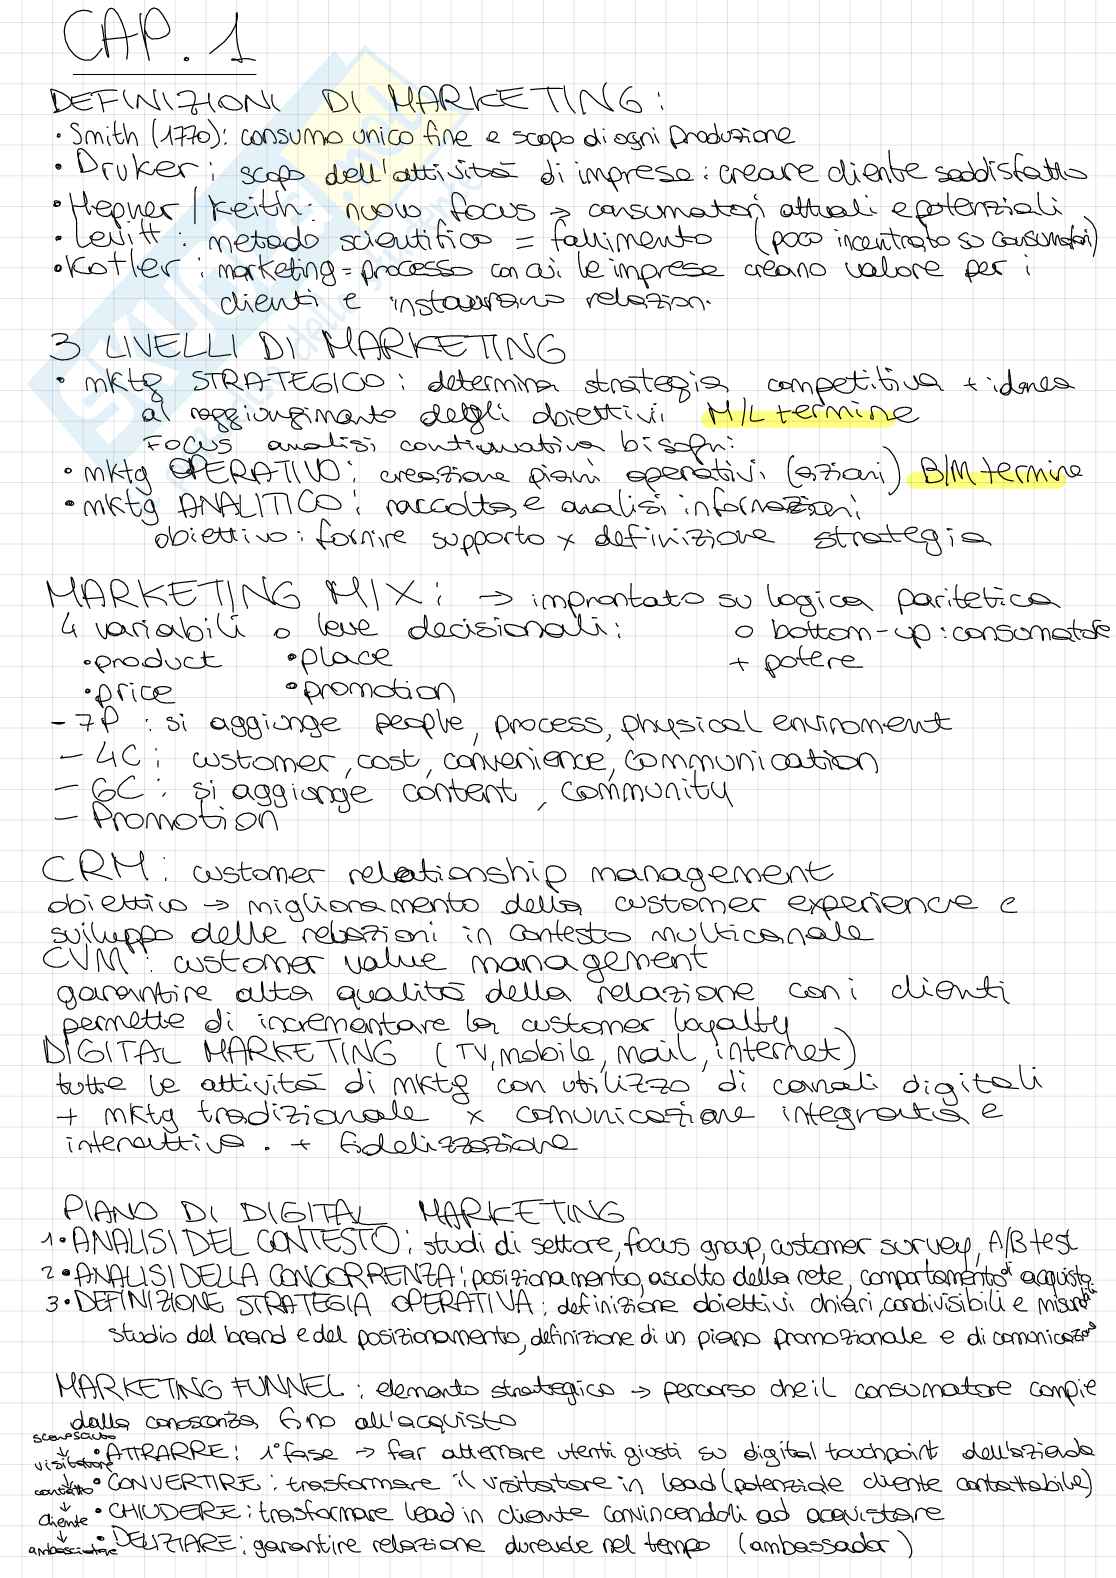 CAP. 1
DEFINIZIONI DI MARKETING:
• Smith (1770): consumo unico fine e scopo di ogni produzione
• Druker: scopo dell'attività di imprese: creare cliente soddisfatto
• Hepner/Keith: nuovo focus → consumatori attuali e potenziali
• Levitt: metodo scientifico = fallimento (poco incentrato su consumatori)
• Kotler: marketing = processo con cui le imprese creano valore per i
clienti e instaurano relazioni.
3 LIVELLI DI MARKETING
• mktg STRATEGICO: determina strategia competitiva + idonea
al raggiungimento degli obiettivi M/L termine
FOCUS analisi continuativa bisogni
• mktg OPERATIVO: creazione piani operativi (azioni) B/M termine
• mktg ANALITICO: raccolta e analisi informazioni
obiettivo: fornire supporto x definizione strategia
MARKETING MIX: → improntato su logica paritetica
4 variabili o leve decisionali: o bottom-up: consumatore
• product • place + potere
• price • promotion
- 7P: si aggiunge people, process, physical enviroment
- 4C: customer, cost, convenience, communication
- 6C: si aggionge content, community
- Promotion
CRM: customer relationship management
obiettivo → miglioramento della customer experience e
sviluppo delle relazioni in contesto multicanale
CVM: customer value management
garantire alta qualità della relazione con i clienti
permette di incrementare la customer loyalty
DIGITAL MARKETING (TV, mobile, mail, internet)
tutte le attività di mktg con utilizzo di canali digitali
+ mktg tradizionale x comunicazione integrata e
interattiva. + fidelizzazione
PIANO DI DIGITAL MARKETING
1• ANALISI DEL CONTESTO: studi di settore, focus group, customer survey, A/B test
2• ANALISI DELLA CONCORRENZA: posizionamento, ascolto della rete, comportamento di acquisto
3• DEFINIZIONE STRATEGIA OPERATIVA: definizione obiettivi chiari, condivisibili e misurabili
studio del brand e del posizionamento, definizione di un piano promozionale e di comunicazione
MARKETING FUNNEL: elemento strategico → percorso che il consumatore compie
dalla conoscenza fino all'acquisto
sconosciuto
↓
visitatore • ATTRARRE: 1° fase → far atterrare utenti giusti su digital touchpoint dell'azienda
↓
contatto • CONVERTIRE: trasformare il visitatore in lead (potenziale cliente contattabile)
↓
cliente • CHIUDERE: trasformare lead in cliente convincendoli ad acquistare
↓
ambasciatore • DELIZIARE: garantire relazione durevole nel tempo (ambassador)